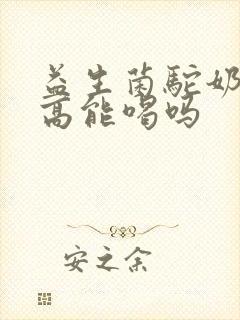 益生菌驼奶
高能喝吗
安之余